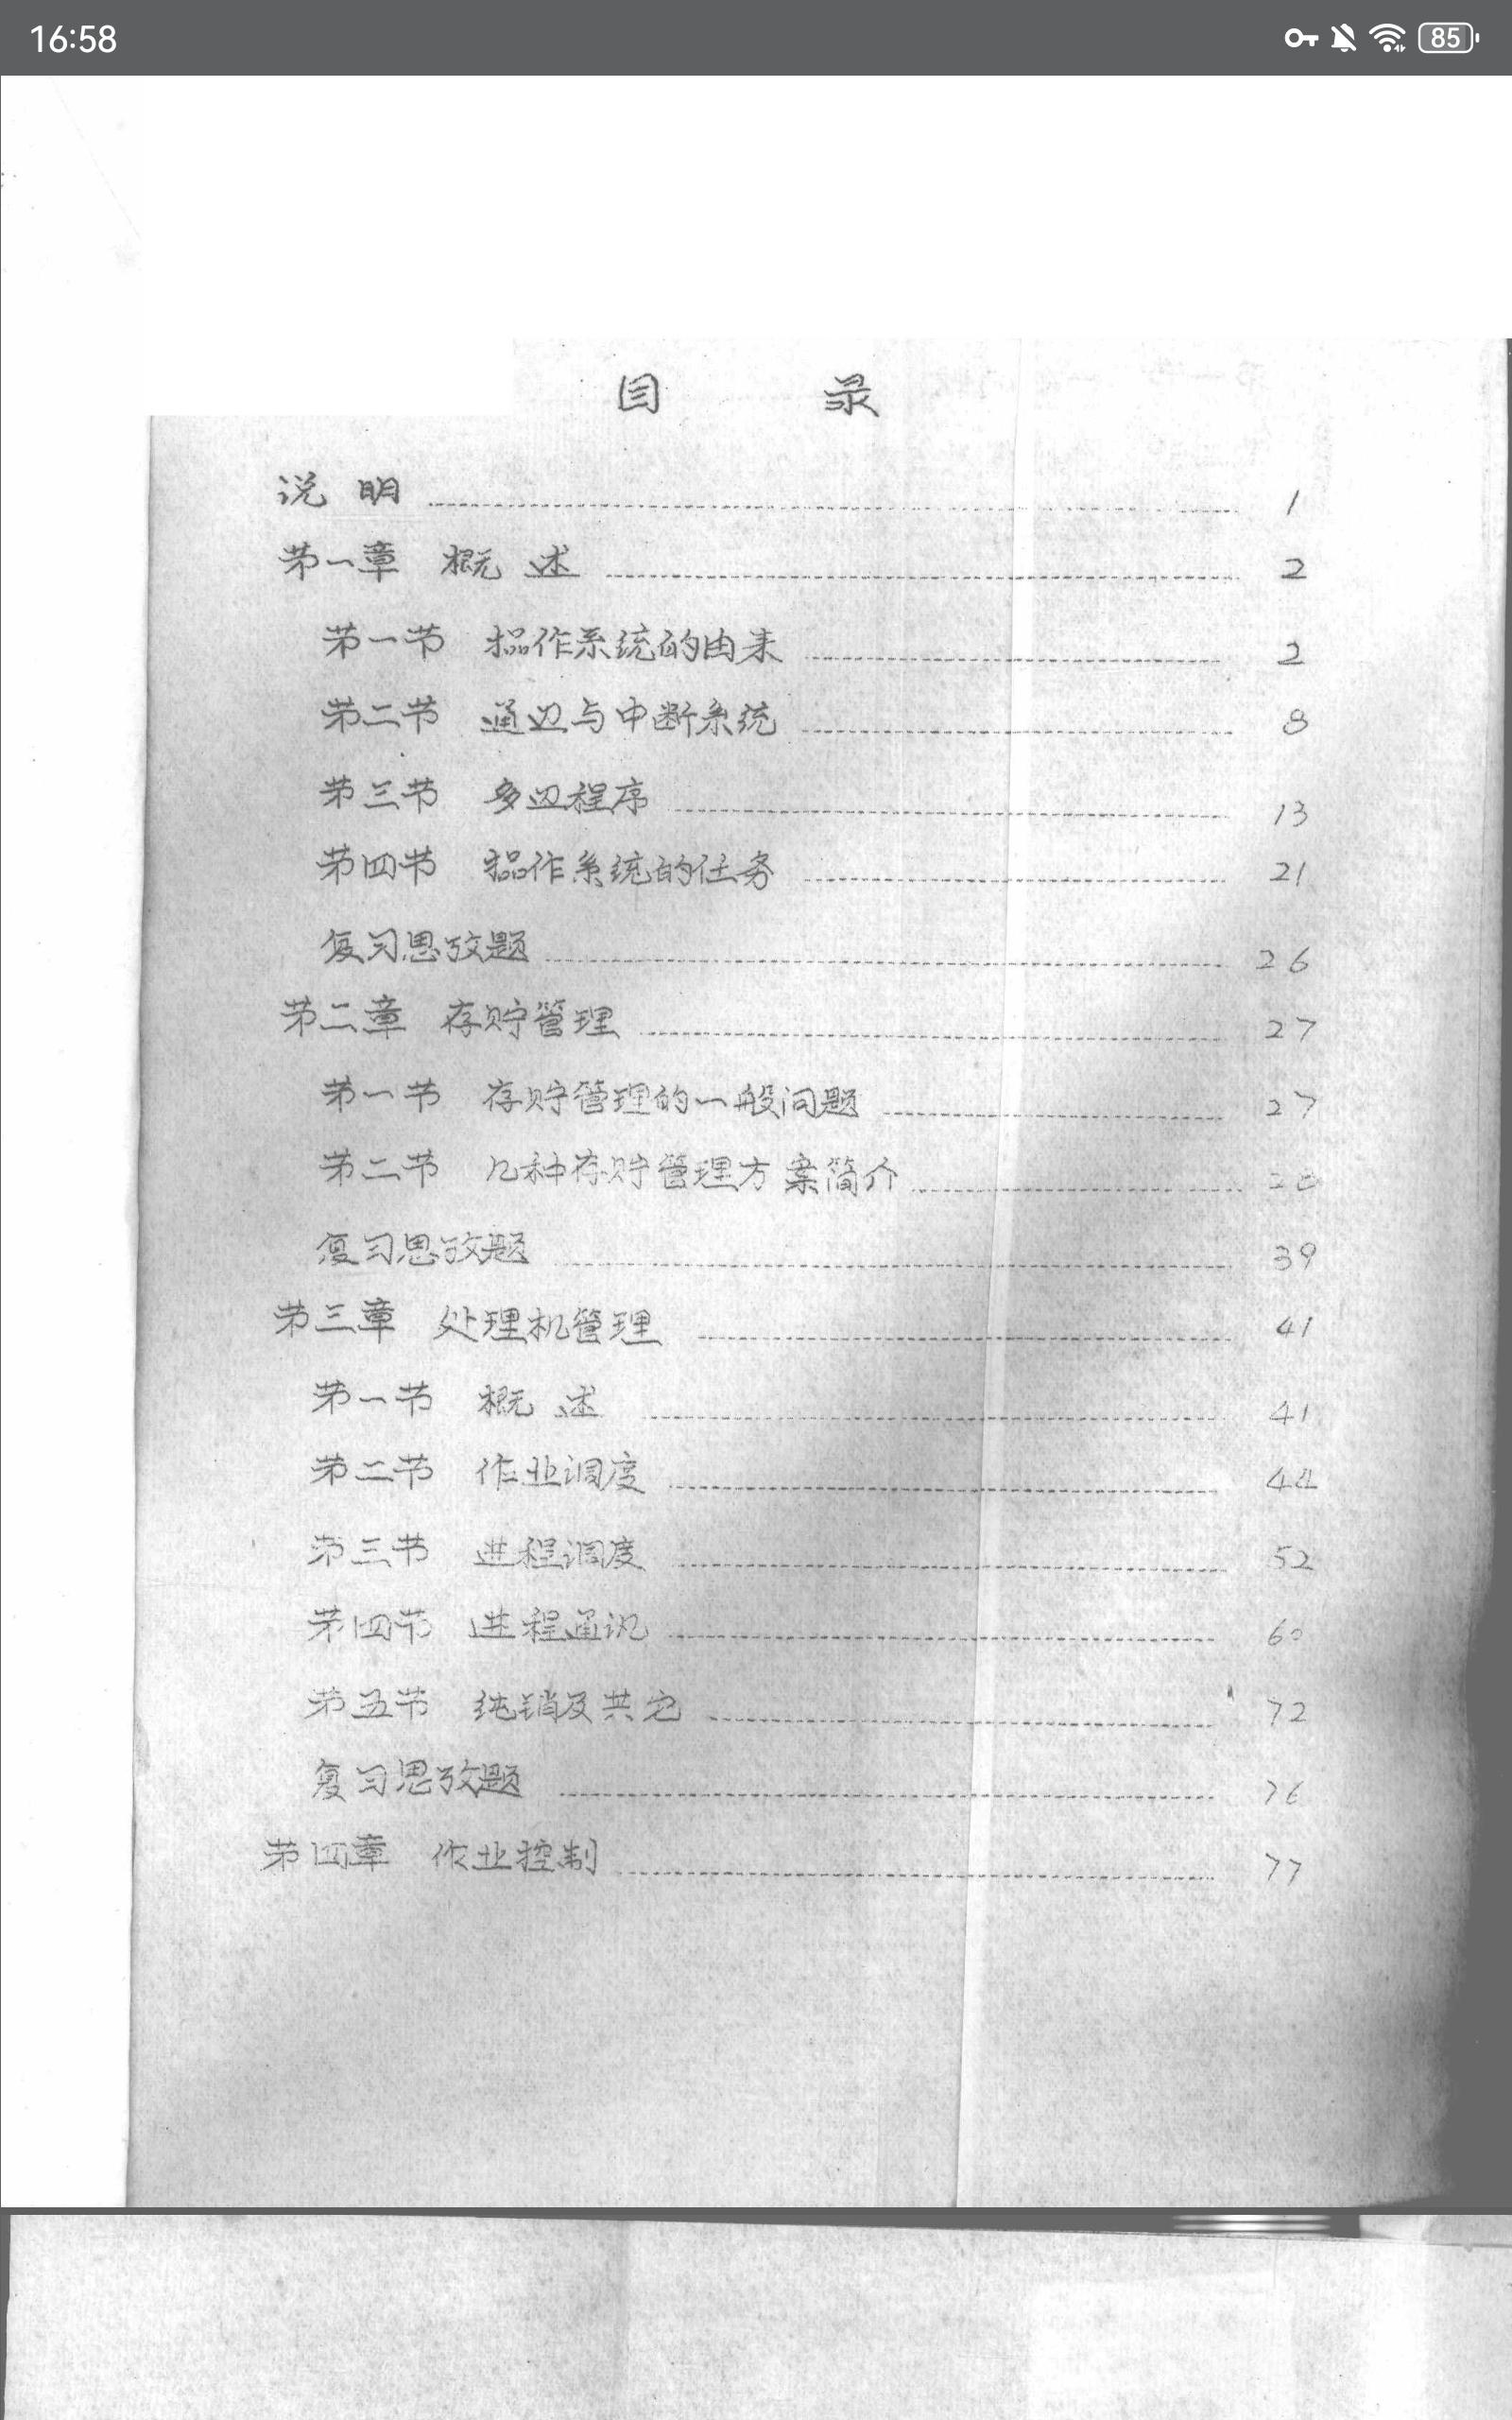 16:58
85
目 录
说 明 1
第一章 概 述 2
第一节 操作系统的由来 2
第二节 通辺与中断系统 8
第三节 多辺程序 13
第四节 操作系统的任务 21
复习思攷题 26
第二章 存贮管理 27
第一节 存贮管理的一般问题 27
第二节 几种存贮管理方案简介
复习思攷题 39
第三章 处理机管理 41
第一节 概 述 41
第二节 作业调度 44
第三节 进程调度 52
第四节 进程通讯 60
第五节 及其它 72
复习思攷题 76
第四章 作业控制 77